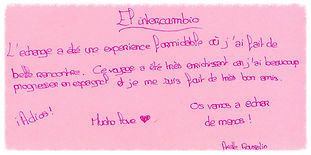 El intercambio
L'echange a été une experience formidable où j'ai fait de
belle rencontre. Ce voyage a été très enrichissant où j'ai beaucoup
progresser en espagnol et je me suis fait de très bon amis.
¡Adios!
Mucho love ❤
Os vamos a echar
de menos !